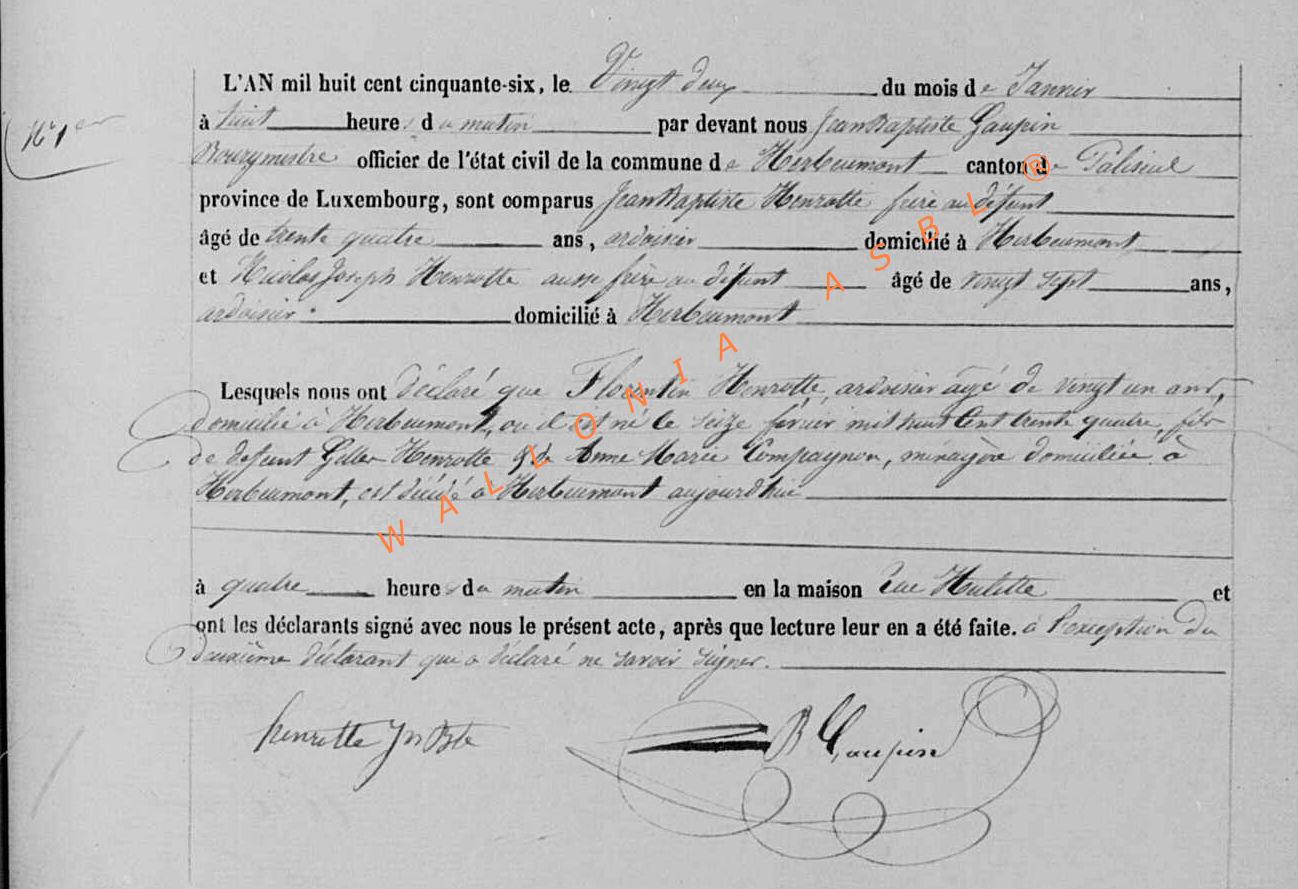 L'AN mil huit cent cinquante-six, le Vingt deux du mois de Janvier
N° 1er
à huit heures du matin par devant nous Jean Baptiste Gaupin
Bourgmestre officier de l'état civil de la commune de Herbeumont canton de Paliseul
province de Luxembourg, sont comparus Jean Baptiste Henrotte frère au défunt
âgé de trente quatre ans, ardoisier domicilié à Herbeumont
et Nicolas Joseph Henrotte aussi frère au défunt âgé de vingt sept ans,
ardoisier domicilié à Herbeumont
Lesquels nous ont déclaré que Florentin Henrotte, ardoisier âgé de vingt un ans,
domicilié à Herbeumont, où il est né le seize février mil huit cent trente quatre, fils
de défunt Henrotte & de Anne Marie Compagnon, ménagère domiciliée à
Herbeumont, est décédé à Herbeumont aujourd'hui
à quatre heures du matin en la maison rue Hulette et
ont les déclarants signé avec nous le présent acte, après que lecture leur en a été faite. à l'exception du
deuxième déclarant qui a déclaré ne savoir signer.
henrotte Jn Bte B Gaupin
WALLONIA ASBL ®